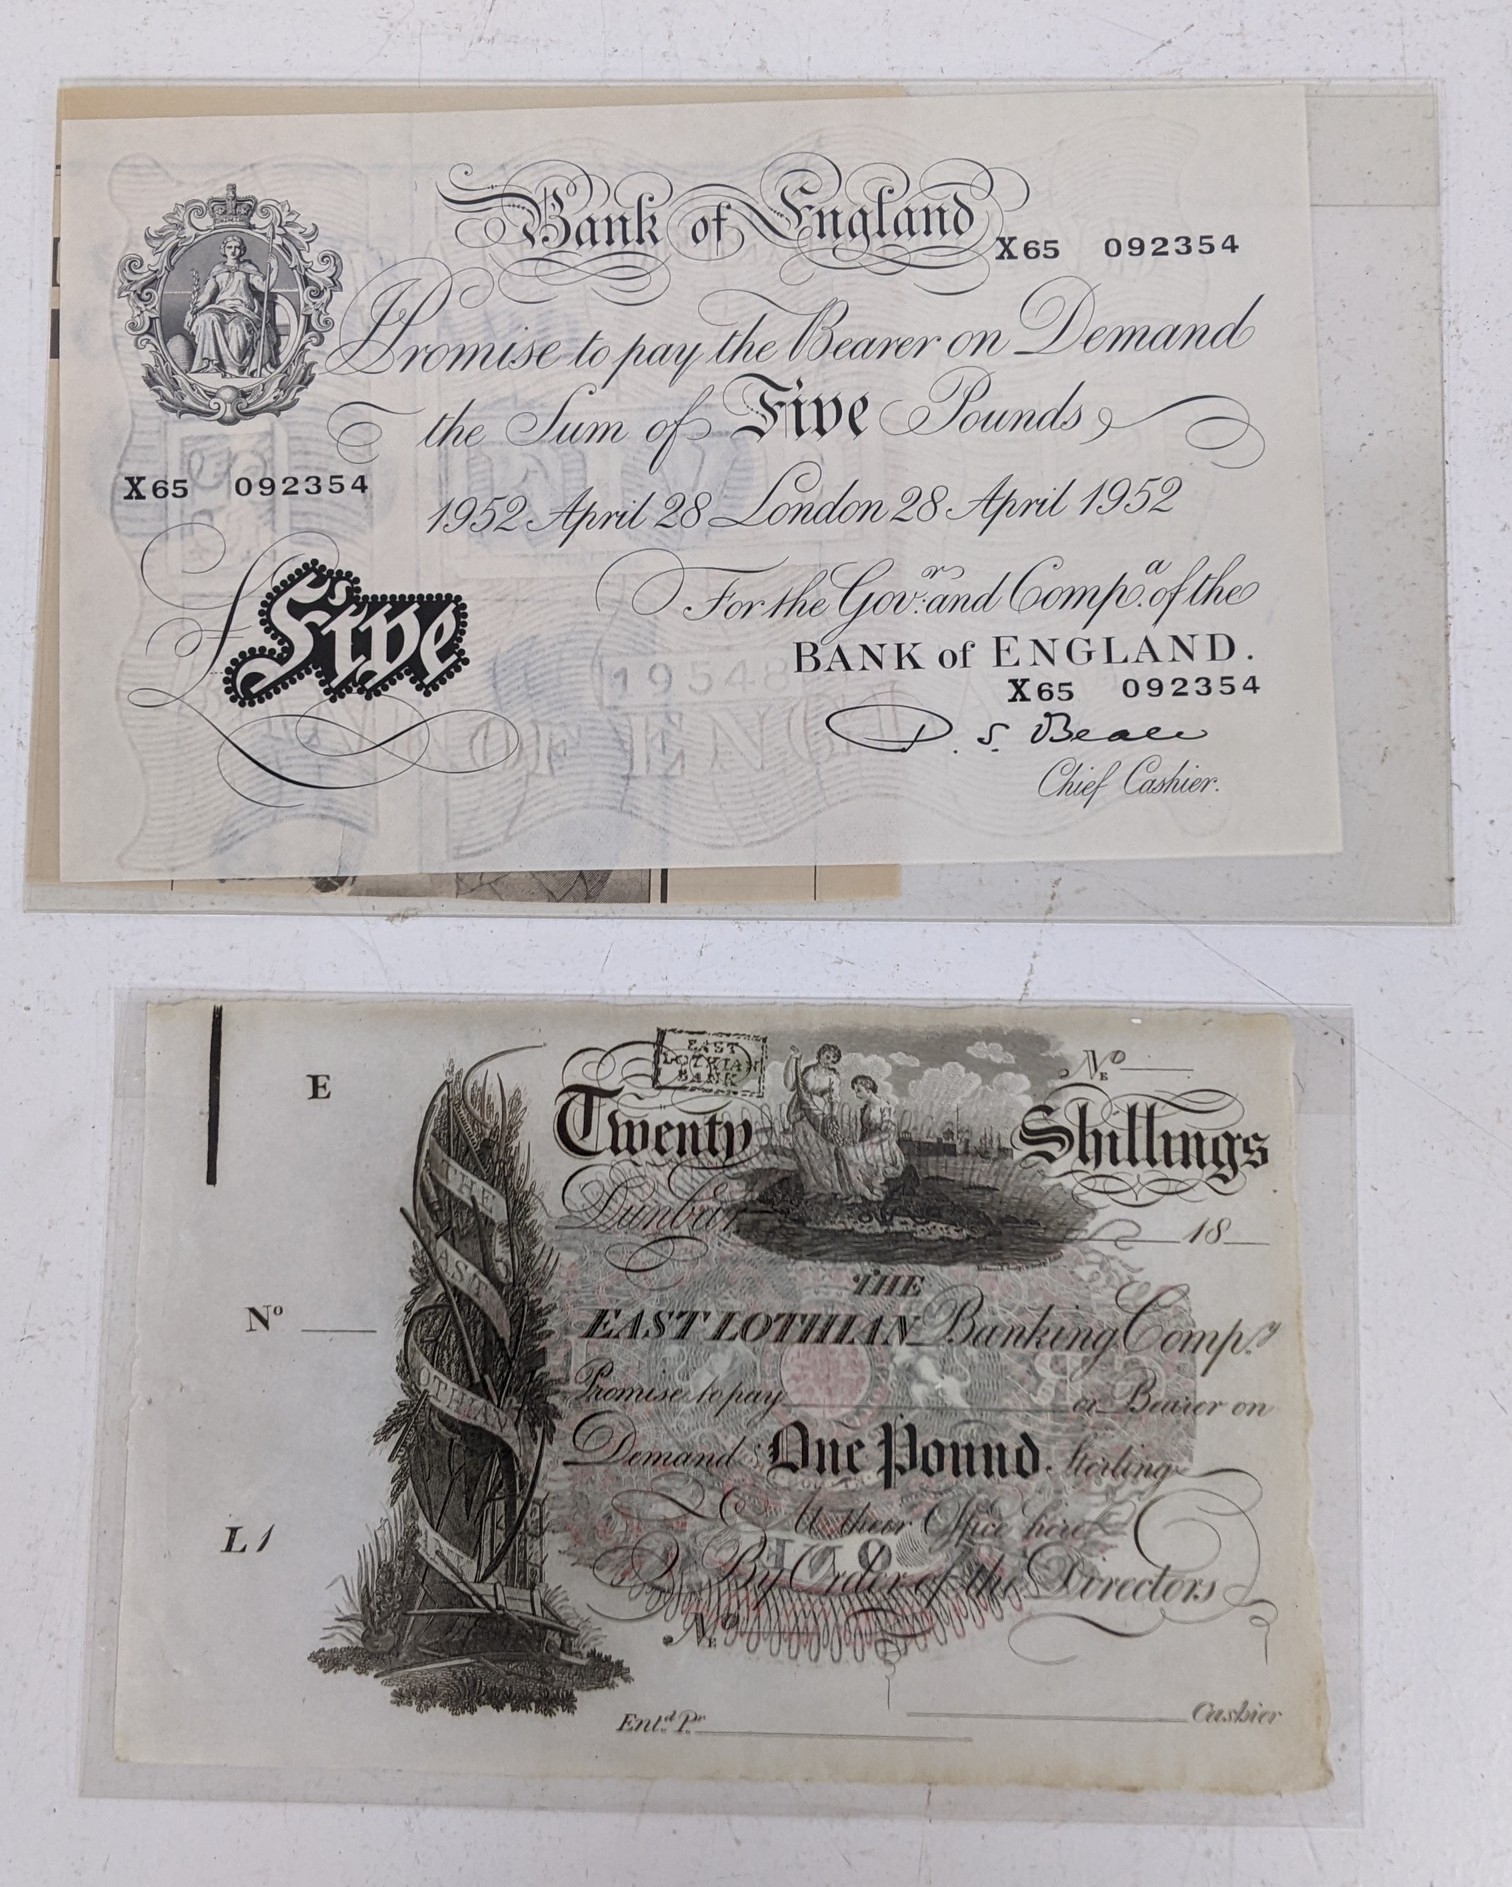 Bank of England
X65 092354
I Promise to pay the Bearer on Demand
the Sum of Five Pounds
X65 092354
1952 April 28 London 28 April 1952
£Five
For the Govr. and Compa. of the
BANK of ENGLAND.
X65 092354
Chief Cashier.
E
EAST
LOTHIAN
BANK
No
Twenty Shillings
Dunbar 18
THE
EAST LOTHIAN Banking Compy
Promise to pay or Bearer on
Demand One Pound Sterling
At their Office here
By Order of the Directors
No
Entd. Pr. Cashier
No
L1
THE
EAST
LOTHIAN